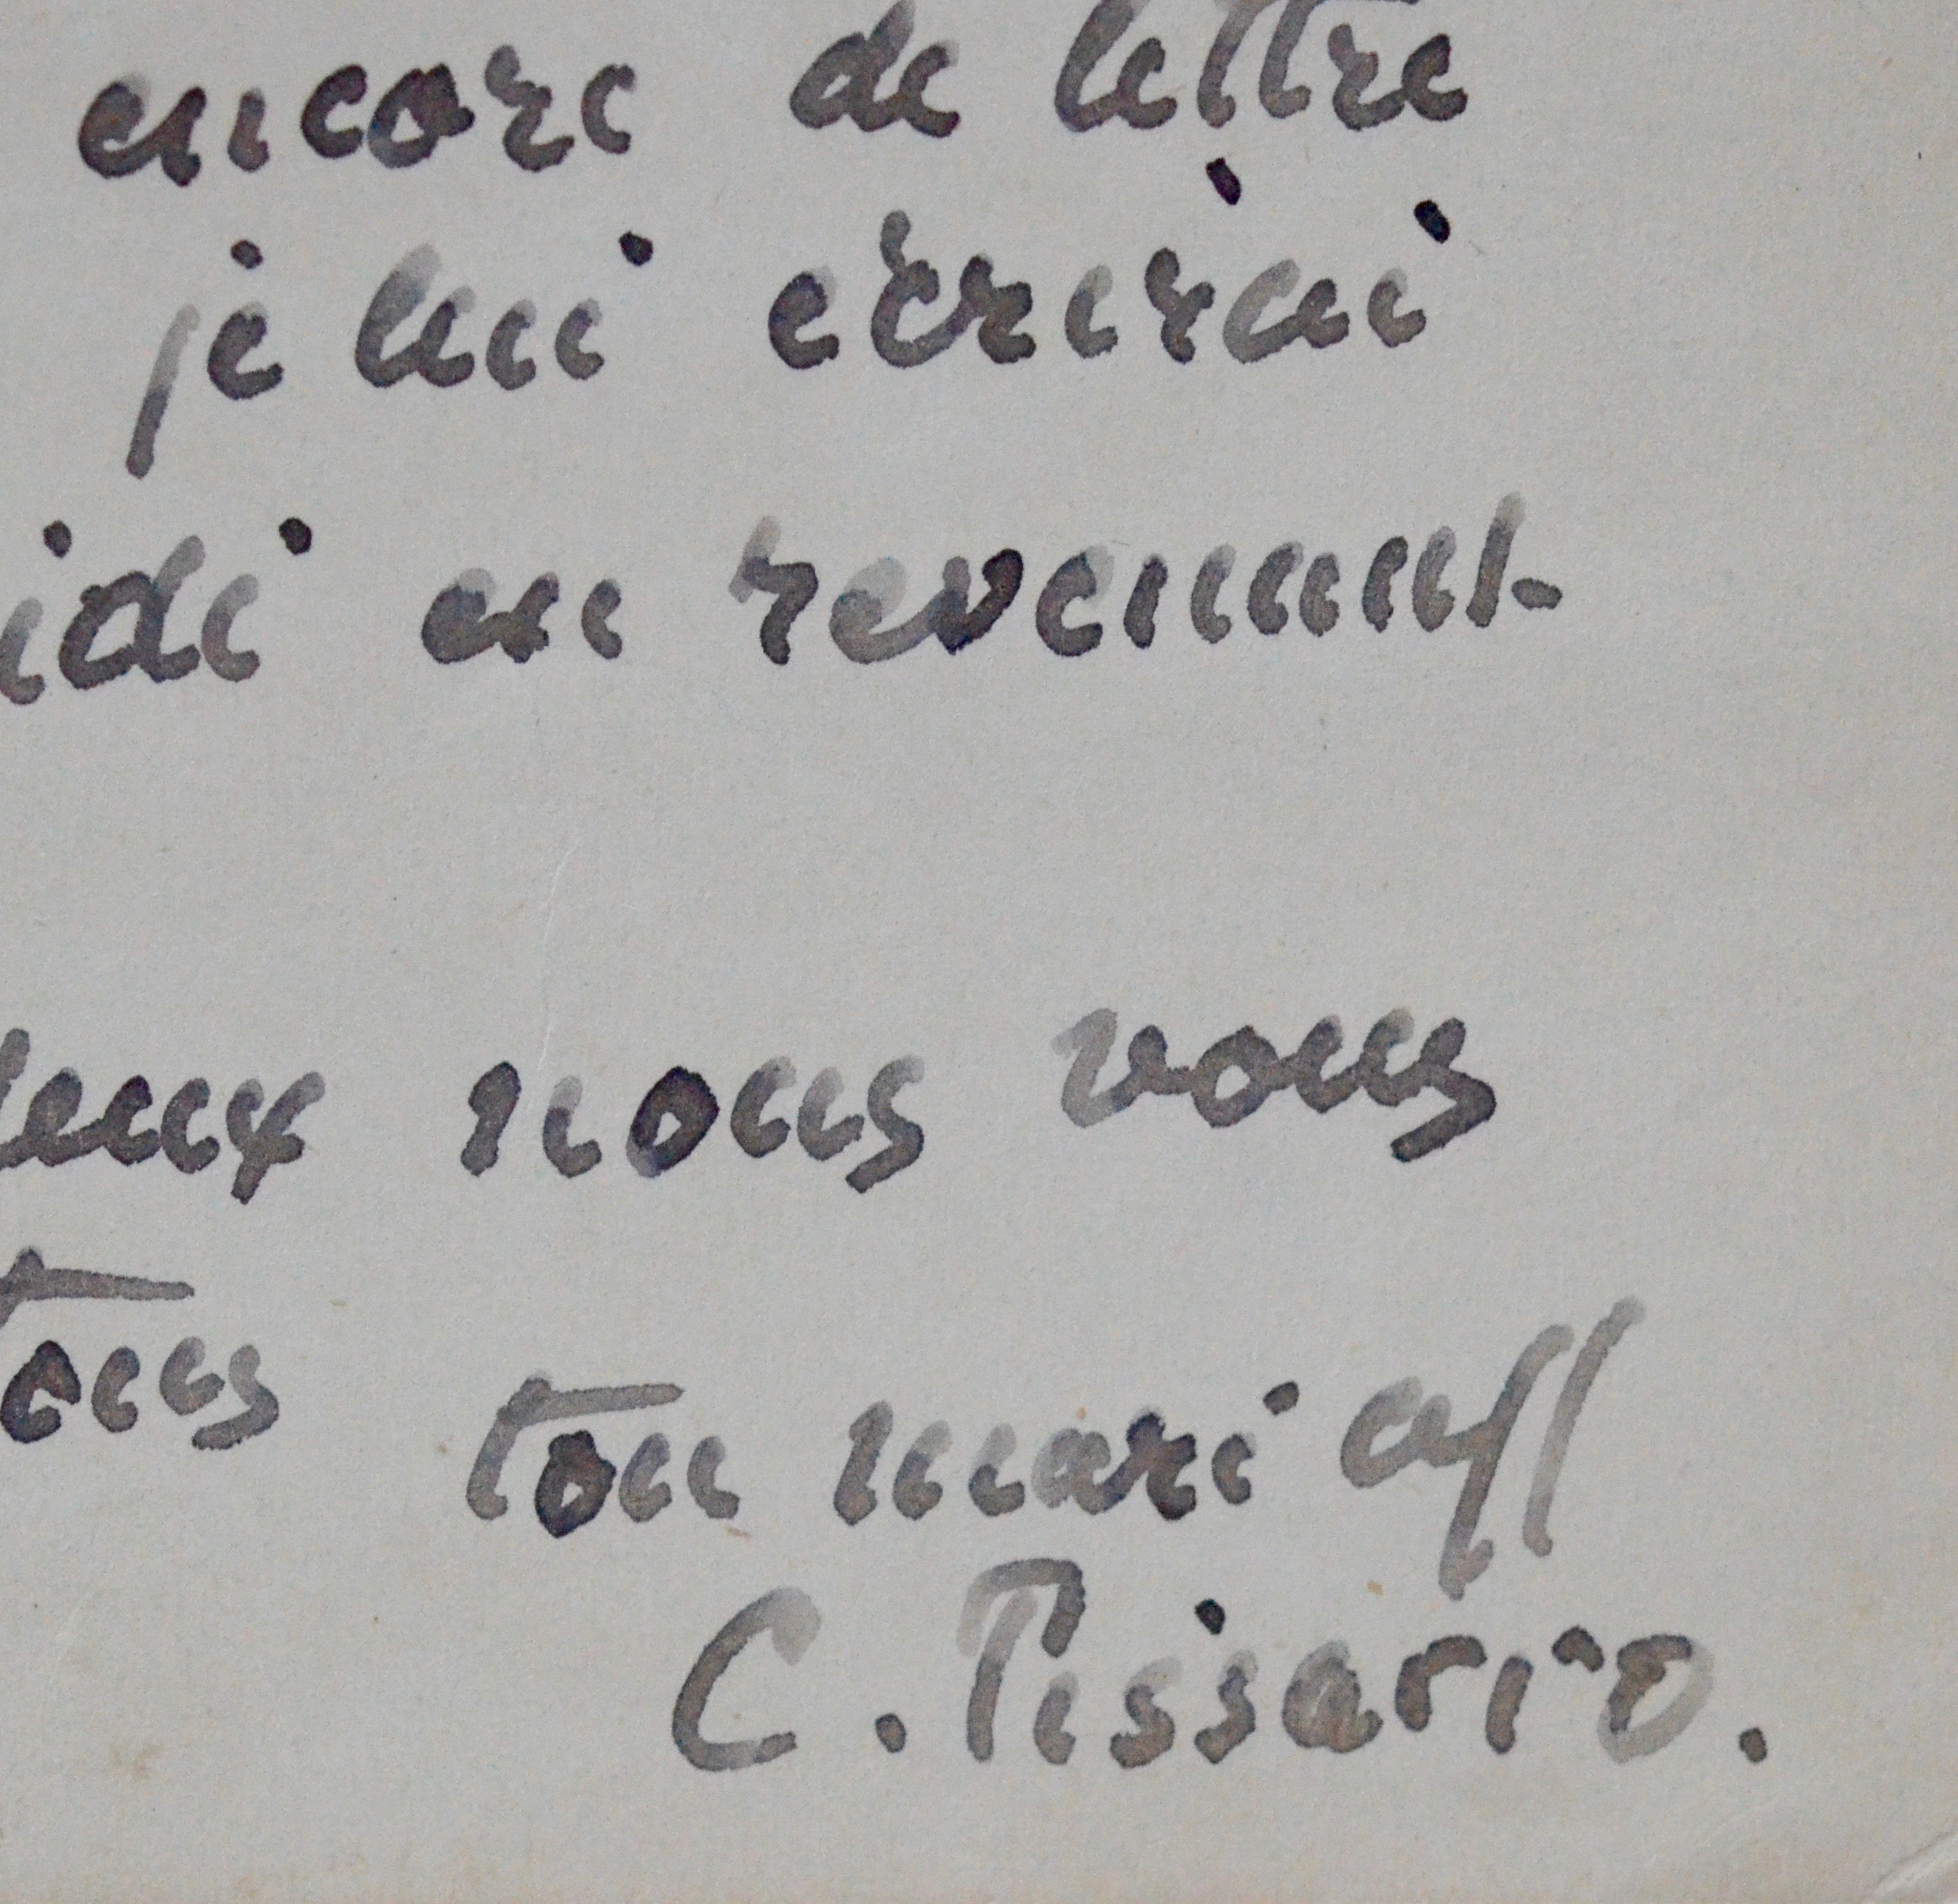 encore de lettre
je lui écrirai
idi en revenant
deux nous vous
tous ton mari aff
C. Pissarro.